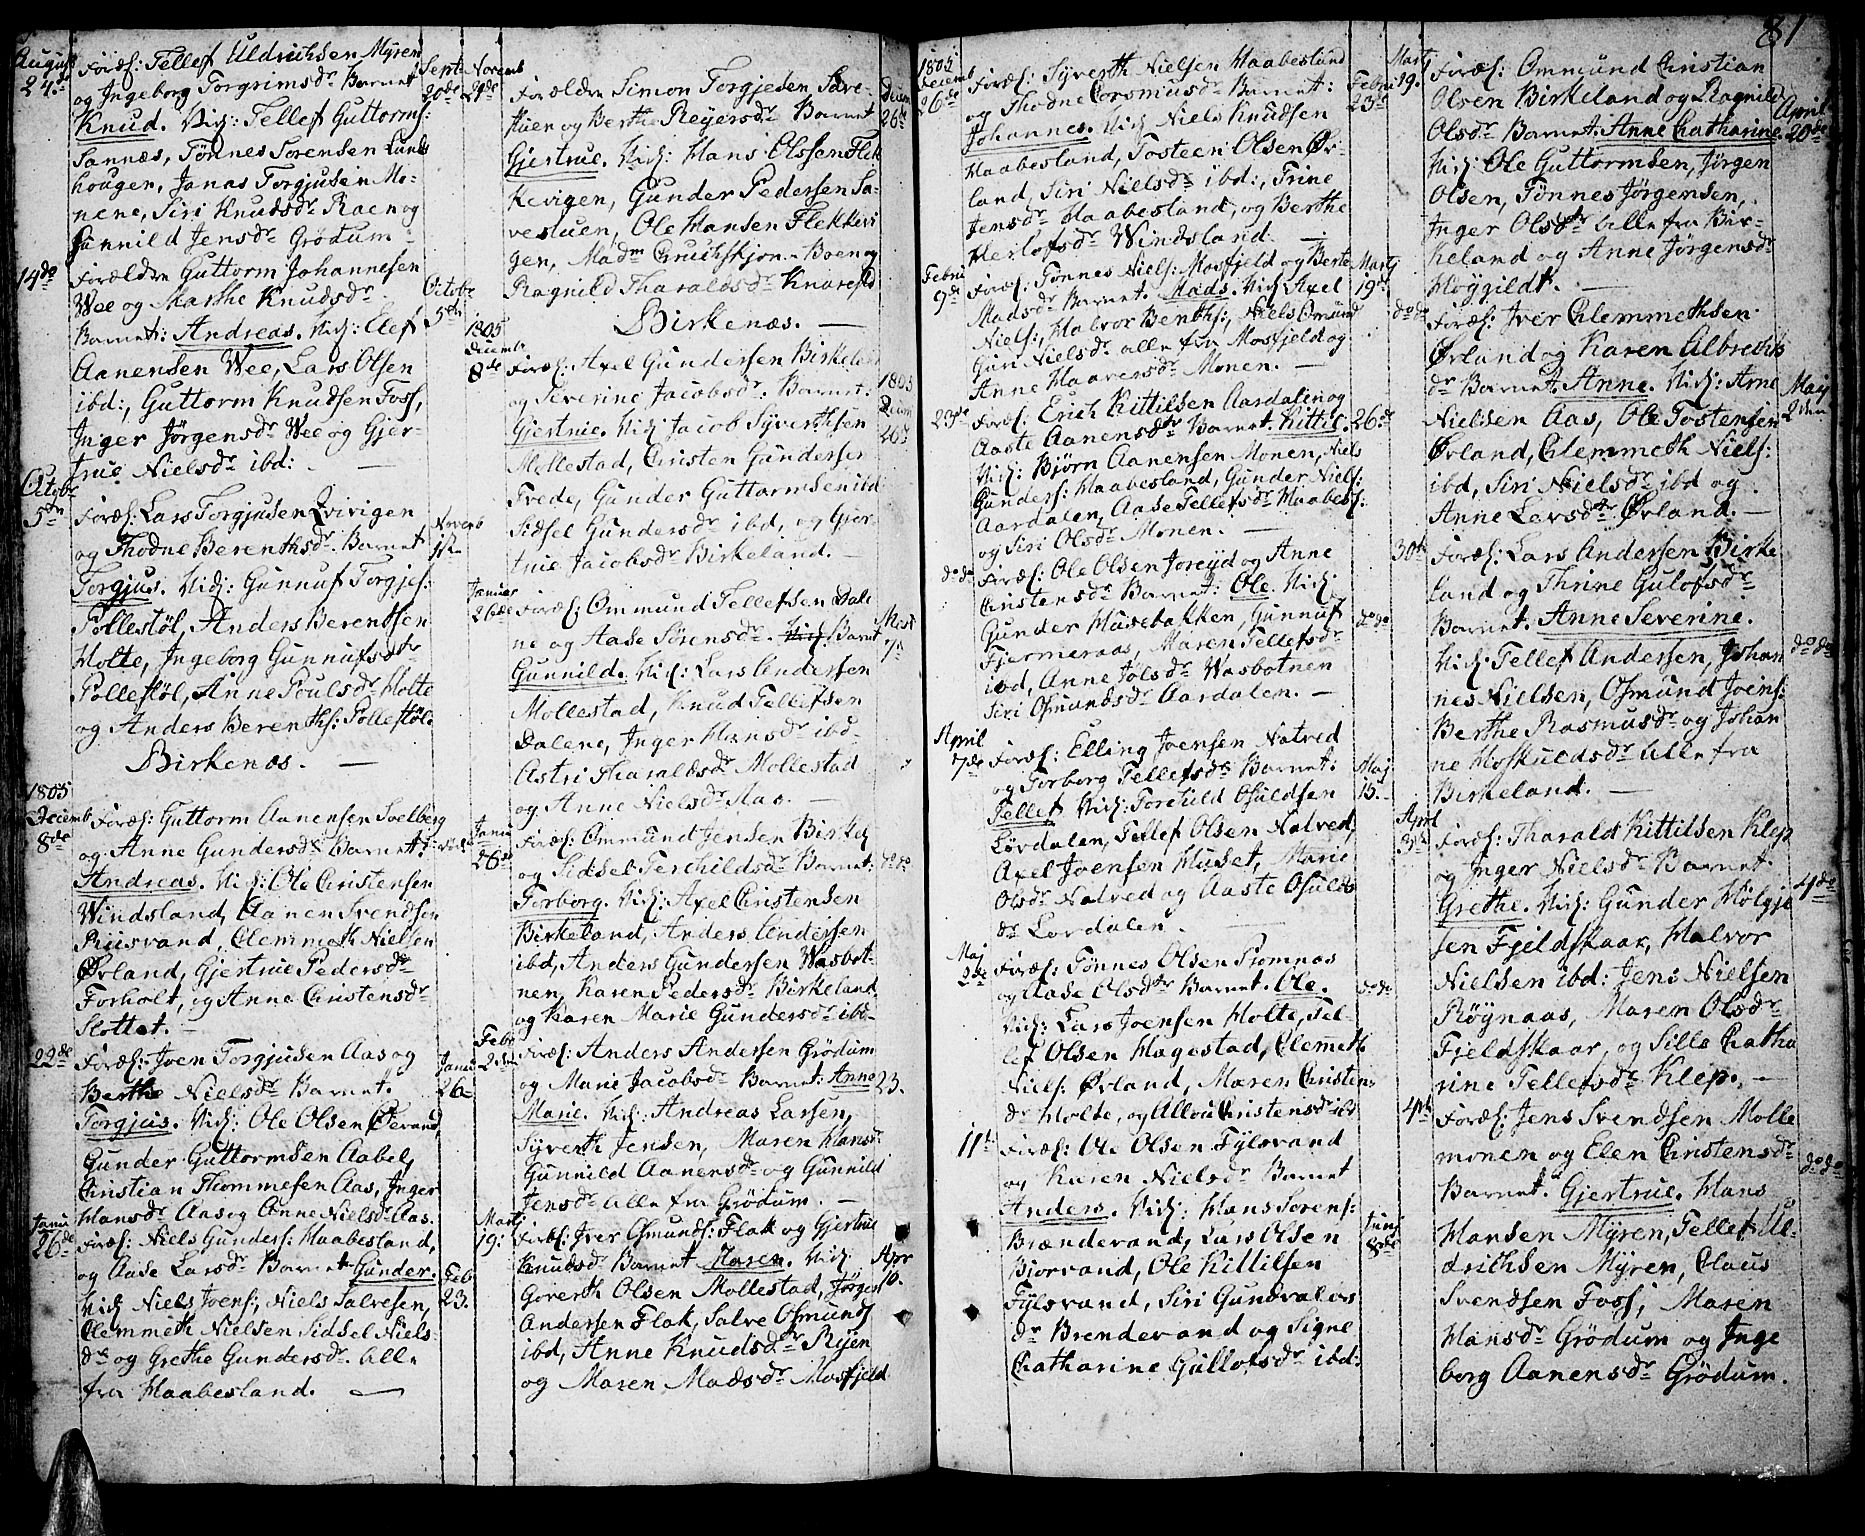 81
August
24de
Foræl: Tellef Uldrichsen Myren
og Ingeborg Torgrimsdr. Barnet
Knud. Vid: Tellef Guttorms:
Sannæs, Tønnes Sorensen Lunds
hougen, Jonas Torgjusen Mo-
nene, Siri Knudsdr Raen og
Gunnild Jensdr Grödum -
Sept
20de
14de
Forældre Guttorm Johannesen
Wee og Marthe Knudsdr.
Barnet: Andreas. Vid: Elef
Aanensen Wee, Lars Olsen
ibd:, Guttorm Knudsen Foss,
Inger Jörgensdr Wee og Gjer-
true Nielsdr ibd: —
Octobr
5de
Octobr
5de
Foræl: Lars Torgjusen Qvivigen
og Thodne Berenthsdr. Barnet
Torgjus. Vid: Gunnuf Torgjes:
Pollestöl, Anders Berentsen
Holte, Ingeborg Gunnufsdr
Pollestöl, Anne Poulsdr Holte
og Anders Berenths: Pollestöl.
Novemb
1ste
Birkenæs. —
1805
Decemb
8de
Foræl: Guttorm Aanensen Svelberg
og Anne Gundersdr Barnet:
Andreas. Vid: Ole Christensen
Windsland, Aanen Svendsen
Riisvand, Clemmeth Nielsen
Ørland, Gjertrue Pedersdr
Forholt, og Anne Christensdr
Slottet. —
22de
Foræl: Joen Torgjusen Aas og
Berthe Nielsdr Barnet.
Torgjus. Vid: Ole Olsen Oevand,
Gunder Guttormsen Aabel,
Christian Thommesen Aas, Inger
Hansdr Aas og Anne Nielsdr Aas.
Janu
26
Janu
26de
Foræl: Niels Gunders: Haabesland,
og Aase Larsdr Barnet Gunder.
Vid Niels Joens:, Niels Salvesen,
Clemmeth Nielsen Sidsel Niels-
dr og Grethe Gundersdr. Alle
fra Haabesland. —
Feb
23.
Novemb
24de
Forældre Simon Torgjesen Save-
stuen og Berthe Reyersdr Barnet
Gjertrue. Vid: Hans Olssen Flek
kevigen, Gunder Pedersen Sa-
vestuen, Ole Hansen Flekkevi
gen, Madm Cruchskjon - Boen og
Ragnild Tharaldsdr Knarestd
Decem
26de
Birkenæs. —
1805
Decembr
8de
Foræl: Axel Gundersen Birkelan
og Severine Jacobsdr. Barnet:
Gjertrue. Vid: Jacob Syverthsen
Mollestad, Christen Gundersen
Trede, Gunder Guttormsen ibd
Sidsel Gundersdr ibd, og Gjer-
true Jacobsdr Birkeland.
1805
Decem
26de
Januar
26de
Foræl: Ommund Tellefsen Dale
ne og Aase Sörensdr. Barnet
Gunnild. Vid: Lars Andersen
Mollestad, Knud Tellefsen
Dalene, Inger Hansdr ibd.
Astri Tharaldsdr Mollestad
og Anne Nielsdr Aas. —
Mart
7n
Janu
26de
Foræl: Ommund Jensen Birkel
og Sidsel Terchildsdr Barnet:
Torborg. Vid: Axel Christensen
Birkeland, Anders Andersen
ibd, Anders Gundersen Wasbot-
nen, Karen Pedersdr Birkeland,
og Karen Marie Gundersdr ibd-
do do
Febr
2den
Foræl: Anders Andersen Grödum
og Marie Jacobsdr Barnet: Anne
Marie. Vid: Andreas Larsen,
Syverth Jensen, Maren Hansdr
Gunnild Aanensdr og Gunnild
Jensdr Alle fra Grödum. —
23.
Martj
19:
Foræl: Iver Osmunds: Flak og Gjertrue
Knudsdr Barnet Maren. Vid:
Goverth Olsen Mollestad, Jörgen
Andersen Flak, Salve Osmunds
ibd, Anne Knudsdr Ryen
og Maren Madsdr Mosfjeld
Apr
10.
1805
Decemb
26de
Foræl: Syverth Nielsen Haabesland
og Thodne Corsmusdr Barnet:
Johannes. Vid Niels Knudsen
Haabesland, Tosteen Olsen Ør-
land, Siri Nielsdr ibd:, Trine
Jensdr Haabesland, og Berthe
Herlofsdr Windsland. —
Febru
23de
Febru
9de
Foræl: Tönnes Niels: Mosfjeld og Berte
Madsdr Barnet. Mads. Vid Axel
Niels:, Halvor Benths:, Niels Omund
Gun Nielsdr alle fra Mosfjeld og
Anne Haaversdr Monen. —
Martj
19de
23de
Foræl: Erich Kittilsen Aardalen og
Aaste Aanensdr Barnet. Kittil.
Vid: Bjørn Aanensen Monen, Niels
Gunders: Haabesland, Gunder Niels:
Aardalen, Aase Tellefsdr Haabesl:
og Siri Olsdr Monen. —
26de
do do
Foræl: Ole Olsen Joreijd og Anne
Christensdr Barnet: Ole. Vid:
Gunder Husebakken, Gunnuf
Fjermeraas, Maren Tellefsdr
ibd, Anne Jölsdr Wasbotnen
Siri Osmundsdr Aardalen. —
do do
April
7de
Foræl: Elling Joensen Natved
og Torborg Tellefsdr Barnet:
Tellef Vid: Torchild Osuldsen
Lövdalen, Tellef Olsen Natved,
Axel Joensen Huset, Marie
Olsdr Natved og Aaste Osulds
dr Lovdalen.
Maj
15.
Maj
2de
Foræl: Tönnes Olsen Stomnas
og Aase Olsdr Barnet. Ole.
Vid: Lars Joensen Holte, Tel-
lef Olsen Hagestad, Clemeth
Niels: Ørland, Maren Christens
dr Holte, og Allou Christensdr ibd
do do
11te
Foræl: Ole Olsen Fylsvand
og Karen Nielsdr Barnet
Anders. Vid: Hans Sorens:
Brændevand, Lars Olsen
Bjorvand, Ole Kittilsen
Fylsvand, Siri Gundvalds
dr Brendevand og Signe
Catharine Gullofsdr ibd:
Junj
8de
Martj
19.
Foræl: Ommund Christian
Olsen Birkeland og Ragnild
Olsdr Barnet: Anne Catharine
Vid: Ole Guttormsen, Jørgen
Olsen, Tönnes Jørgensen,
Inger Olsdr Alle fra Bir-
keland og Anne Jörgensdr
Höygildt. —
April
20de
do do
Foræl: Iver Clemmethsen
Ørland og Karen Albrecths
dr Barnet. Anne. Vid: Arne
Nielsen Aas, Ole Tostensen
Ørland, Clemmeth Niels:
ibd, Siri Nielsdr ibd og
Anne Larsdr Ørland. —
Maij
2den
30te
Foræl: Lars Andersen Birke
land og Thrine Gulofsdr
Barnet. Anne Severine.
Vid: Tellef Andersen, Johan
nes Nielsen, Osmund Joens:
Berthe Rasmusdr og Johan
ne Hoskuldsdr Alle fra
Birkeland. —
do do
April
3de
Foræl: Tharald Kittilsen Klep
og Inger Nielsdr Barnet.
Grethe. Vid: Gunder Hölgje
sen Fjeldskaar, Halvor
Nielsen ibd: Jens Nielsen
Röynaas, Maren Olsdr
Fjeldskaar, og Sille Catha
rine Tellefsdr Klep. —
4de
4de
Foræl: Jens Svendsen Molle
monen og Elen Christensdr
Barnet. Gjertrue. Hans
Hansen Myren, Tellef Ul-
drichsen Myren, Claus
Svendsen Foss, Maren
Hansdr Grödum og Inge
borg Aanensdr Grödum.
do do